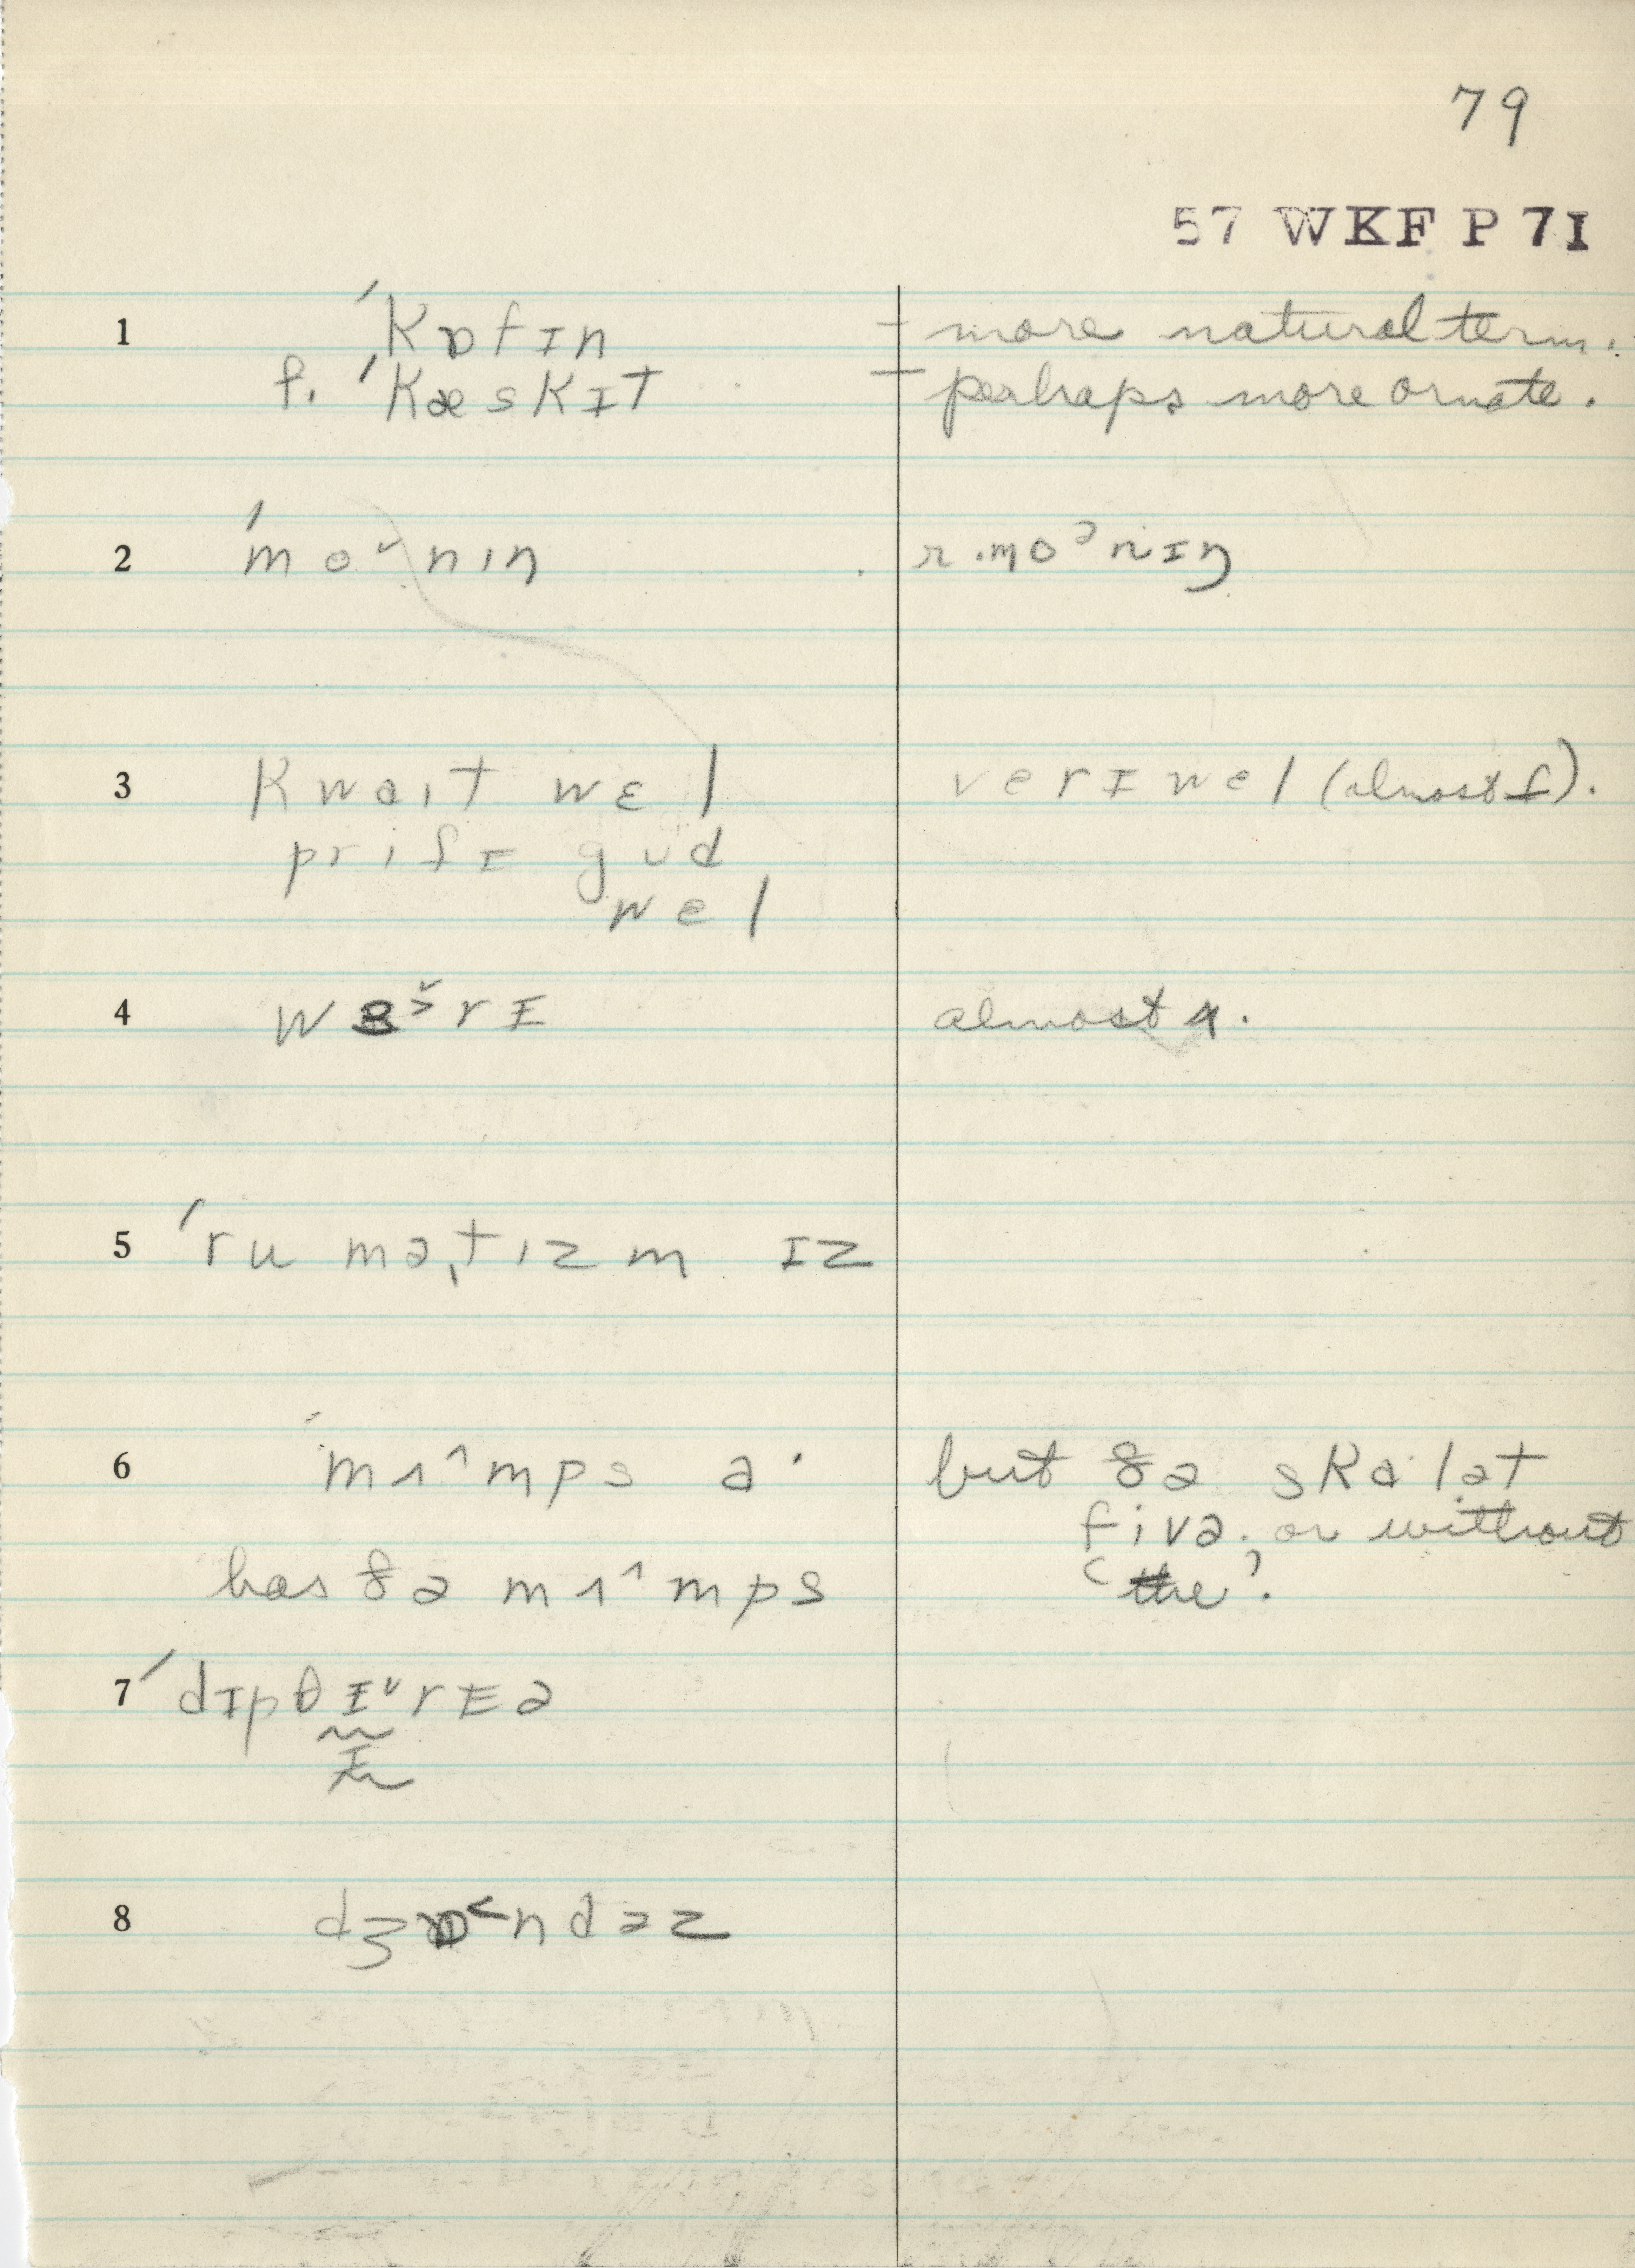 79
57 WKF P 71
1 ˈkɒfɪn – more natural term.
f. ˈkæskɪt – perhaps more ornate.
2 ˈmo˅nɪŋ r. moᵊnɪŋ
3 kwaɪt wɛl verɪ wel (almost f).
prɪfɪ gud
wel
4 wɜ˅rɪ almost ʌ.
5 ˈrumə,tɪzm ɪz
6 ˈmʌ^mps a· but ðə ska·lət
fivə, or without
has ðə mʌ^mps ‘the’.
7 ˈdɪpθɪ˅rɪə
ɪ
8 dʒɒ˂ndəz